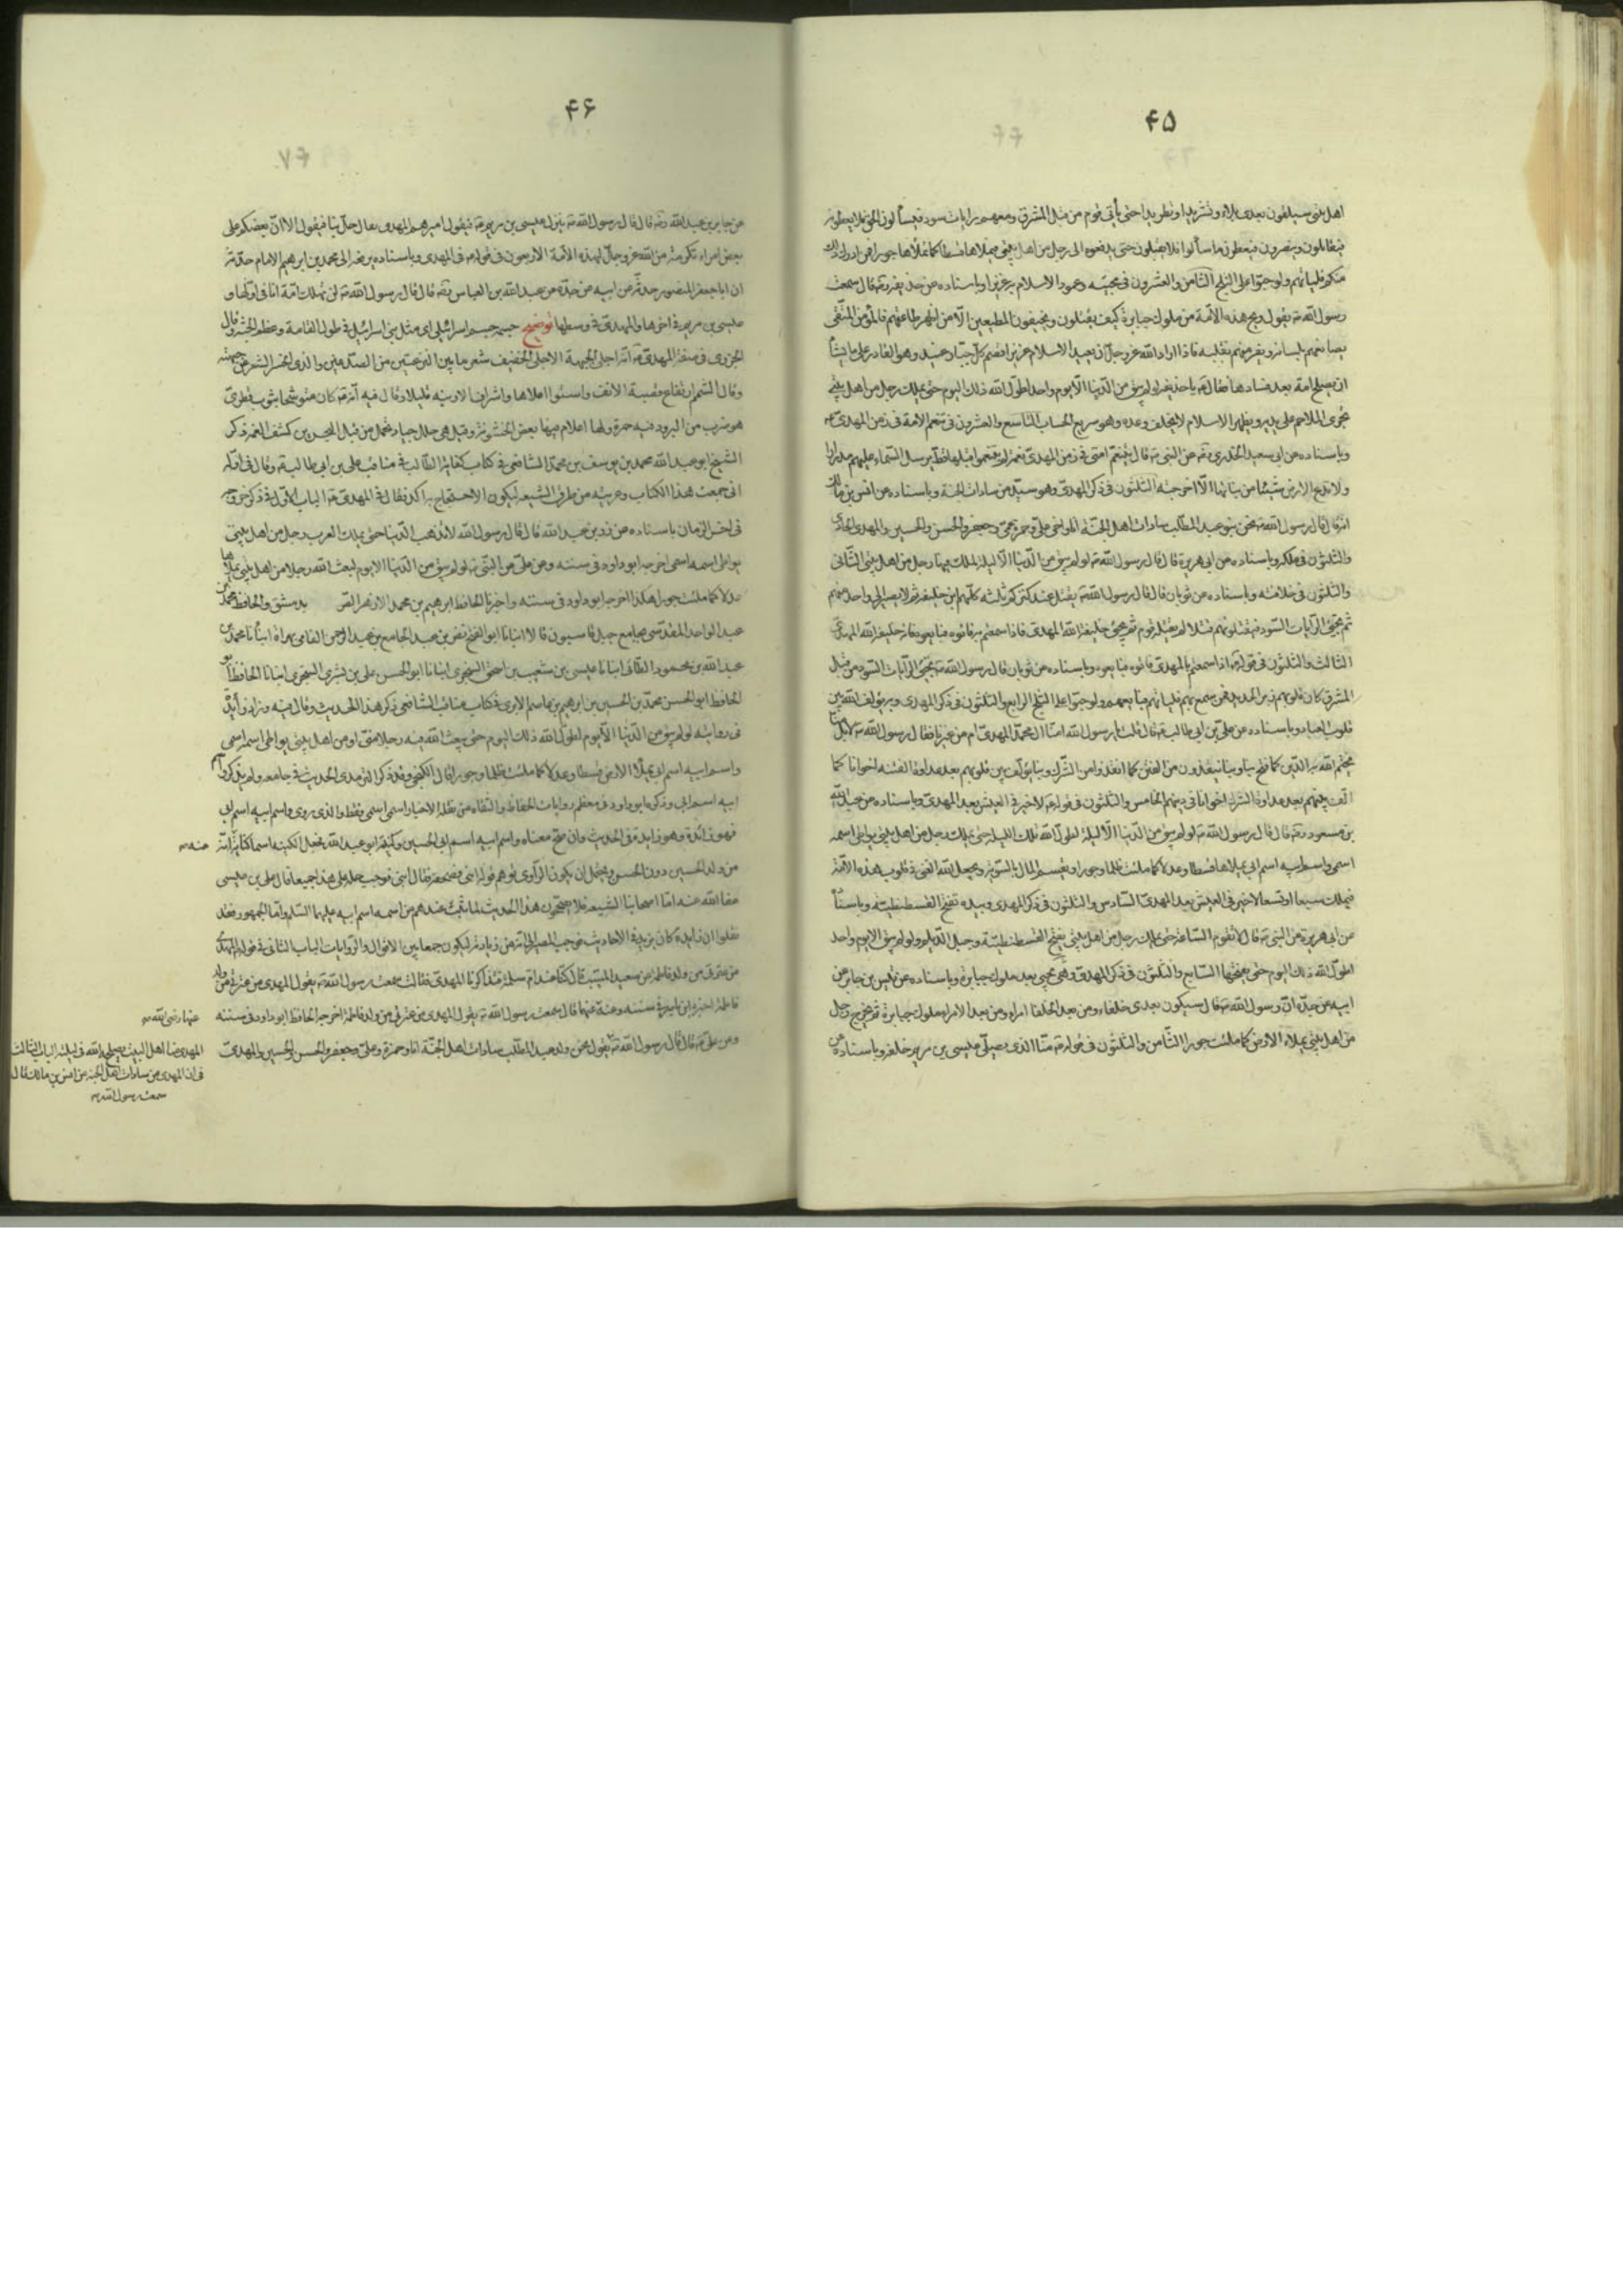 ۴۵
اهل بيتى سيلقون بعدى بلاء و تشريدا و تطريدا حتى يأتى قوم من قبل المشرق ومعهم رايات سود فيسألون الحق فلا يعطونه
فيقاتلون وينصرون فيعطون ما سألوا فلا يقبلون حتى يدفعوه الى رجل من اهل بيتى فيملاها قسطا كما ملأوها جورا فمن ادرك ذلك
منكم فليأتهم ولو حبوا على الثلج الثامن والعشرون فى مجيئه وعود الاسلام به عزيزا وباسناده عن حذيفة قال سمعت
رسول الله يقول ويح هذه الامة من ملوك جبابرة كيف يقتلون ويخيفون المطيعين الا من اظهر طاعتهم فالمؤمن التقى
يصانعهم بلسانه ويفر منهم بقلبه فاذا اراد الله عز وجل ان يعيد الاسلام عزيزا قصم كل جبار عنيد وهو القادر على ما يشاء
ان يصلح امة بعد فسادها فقال يا حذيفة لو لم يبق من الدنيا الا يوم واحد لطول الله ذلك اليوم حتى يملك رجل من اهل بيتى
تجرى الملاحم على يديه ويظهر الاسلام لا يخلف وعده وهو سريع الحساب التاسع والعشرون فى تنعم الامة فى زمن المهدى
وباسناده عن ابى سعيد الخدرى عن النبى قال يتنعم امتى فى زمن المهدى نعمة لم يتنعموا مثلها قط يرسل السماء عليهم مدرارا
ولا تدع الارض شيئا من نباتها الا اخرجته الثلثون فى ذكر المهدى وهو سيد من سادات الجنة وباسناده عن انس بن مالك
انه قال قال رسول الله نحن بنو عبد المطلب سادات اهل الجنة انا واخى على وعمى حمزة وجعفر والحسن والحسين والمهدى الحادى
والثلثون فى ملكه وباسناده عن ابى هريرة قال قال رسول الله لو لم يبق من الدنيا الا ليلة لملك فيها رجل من اهل بيتى الثانى
والثلثون فى خلافته وباسناده عن ثوبان قال قال رسول الله يقتل عند كنزكم ثلثة كلهم ابن خليفة ثم لا يصير الى واحد منهم
ثم تجئ الرايات السود فيقتلونهم قتلا لم يقتله قوم ثم يجئ خليفة الله المهدى فاذا سمعتم به فأتوه فبايعوه فانه خليفة الله المهدى
الثالث والثلثون فى قوله اذا سمعتم بالمهدى فأتوه فبايعوه وباسناده عن ثوبان قال رسول الله تجئ الرايات السود من قبل
المشرق كان قلوبهم زبر الحديد فمن سمع بهم فليأتهم فبايعهم ولو حبوا على الثلج الرابع والثلثون فى ذكر المهدى وبه يؤلف الله بين
قلوب العباد وباسناده عن على بن ابى طالب قال قلت يا رسول الله امنا ال محمد المهدى ام من غيرنا فقال رسول الله لا بل منا
يختم الله به الدين كما فتح بنا وبنا ينقذون من الفتن كما انقذوا من الشرك وبنا يؤلف بين قلوبهم بعد عداوة الفتنة اخوانا كما
الف بينهم بعد عداوة الشرك اخوانا فى دينهم الخامس والثلثون فى قوله لا خير فى العيش بعد المهدى وباسناده عن عبد الله
بن مسعود قال قال رسول الله لو لم يبق من الدنيا الا ليلة لطول الله تلك الليلة حتى يملك رجل من اهل بيتى يواطى اسمه
اسمى واسم ابيه اسم ابى يملاها قسطا وعدلا كما ملئت ظلما وجورا ويقسم المال بالسوية ويجعل الله الغنى فى قلوب هذه الامة
فيملك سبعا او تسعا لا خير فى العيش بعد المهدى السادس والثلثون فى ذكر المهدى وبيده تفتح القسطنطينية وباسناده
عن ابى هريرة عن النبى قال لا تقوم الساعة حتى يملك رجل من اهل بيتى يفتح القسطنطينية وجبل الديلم ولو لم يبق الا يوم واحد
لطول الله ذلك اليوم حتى يفتحها السابع والثلثون فى ذكر المهدى وهو يجئ بعد ملوك جبابرة وباسناده عن قيس بن جابر عن
ابيه عن جده ان رسول الله قال سيكون بعدى خلفاء ومن بعد الخلفا امراء ومن بعد الامراء ملوك جبابرة ثم يخرج رجل
من اهل بيتى يملاء الارض كما ملئت جورا الثامن والثلثون فى قوله منا الذى يصلى عيسى بن مريم خلفه وباسناده عن
۴۶
عن جابر بن عبد الله قال قال رسول الله ينزل عيسى بن مريم فيقول اميرهم المهدى تعال صل بنا فيقول الا ان بعضكم على
بعض امراء تكرمة من الله عز وجل لهذه الامة الاربعون فى قوله فى المهدى وباسناده يرفعه الى محمد بن ابرهيم الامام حدثه
ان ابا جعفر المنصور حدثه عن ابيه عن جده عن عبد الله بن العباس قال قال رسول الله لن تهلك امة انا فى اولها و
عيسى بن مريم فى اخرها والمهدى فى وسطها توضيح جسمه جسم اسرائيلى اى مثل بنى اسرائيل فى طول القامة وعظم الجثة وقال
الجزرى فى صفة المهدى انه اجلى الجبهة الاجلى الخفيف شعر ما بين النزعتين من الصدغين والذى انحسر الشعر عن جبهته
وقال الشمم ارتفاع قصبة الانف واستواء اعلاها واشراف الارنبة قليلا وقال فيه انه كان متوشحا بثوب قطرى
هو ضرب من البرود فيه حمرة ولها اعلام فيها بعض الخشونة وقيل هى حلل جياد تحمل من قبل البحرين كشف الغمة ذكر
الشيخ ابو عبد الله محمد بن يوسف بن محمد الشافعى فى كتاب كفاية الطالب فى مناقب على بن ابى طالب وقال فى اوله
انى جمعت هذا الكتاب وعريته من طرق الشيعة ليكون الاحتجاج به اكد فقال فى المهدى الباب الاول فى ذكر خروجه
فى اخر الزمان باسناده عن زر بن عبد الله قال قال رسول الله لا تذهب الدنيا حتى يملك العرب رجل من اهل بيتى
يواطى اسمه اسمى اخرجه ابو داود فى سننه وعن على عن النبى لو لم يبق من الدنيا الا يوم لبعث الله رجلا من اهل بيتى يملاها
عدلا كما ملئت جورا هكذا اخرجه ابو داود فى سننه واخبرنا الحافظ ابرهيم بن محمد الازهر بدمشق والحافظ محمد بن
عبد الواحد المقدسى بجامع جبل قاسيون قالا انبانا ابو الفتح نصر بن عبد الجامع بن عبد الرحمن الفامى بهراة انبأنا محمد بن
عبد الله بن محمود الطائى انبانا عيسى بن شعيب بن اسحق السنجرى انبانا ابو الحسن على بن بشرى السنجرى انبانا الحافظ ابو
الحافظ ابو الحسن محمد بن الحسين بن ابرهيم بن عاصم الابرى فى كتاب مناقب الشافعى ذكر هذا الحديث وقال فيه وزاد زائدة
فى روايته لو لم يبق من الدنيا الا يوم لطول الله ذلك اليوم حتى يبعث الله فيه رجلا منى او من اهل بيتى يواطى اسمه اسمى
واسم ابيه اسم ابى يملأ الارض قسطا وعدلا كما ملئت ظلما وجورا قال الكنجى وقد ذكر الترمذى الحديث فى جامعه ولم يذكر واسم
ابيه اسم ابى وذكره ابو داود فى معظم روايات الحفاظ والثقاة من نقلة الاخبار اسمه اسمى فقط والذى روى واسم ابيه اسم ابى
فهو زائدة وهو يزيد فى الحديث وان صح معناه واسم ابيه اسم ابى الحسين وكنيته ابو عبد الله فجعل الكنية اسما كناية انه
من ولد الحسين دون الحسن ويحتمل ان يكون الراوى توهم قوله ابنى فصحفه فقال ابى فوجب حمله على هذا جمعا قال على بن عيسى
عفا الله عنه اما اصحابنا الشيعة فلا يصححون هذا الحديث لما ثبت عندهم من اسمه واسم ابيه عليهما السلام واما الجمهور فقد
نقلوا ان زائدة كان يزيد فى الاحاديث فوجب المصير الى انه من زيادته ليكون جمعا بين الاقوال والروايات الباب الثانى فى قوله المهدى
من عترتى من ولد فاطمة عن سعيد المسيب قال كنا عند ام سلمة فتذاكرنا المهدى فقالت سمعت رسول الله يقول المهدى من عترتى من ولد
فاطمة اخرجه ابن ماجه فى سننه وعنه عنها قال سمعت رسول الله يقول المهدى من عترتى من ولد فاطمة اخرجه الحافظ ابو داود فى سننه
وعن على قال قال رسول الله يقول نحن ولد عبد المطلب سادات اهل الجنة انا وحمزة وعلى وجعفر والحسن والحسين والمهدى
عنها رضى الله
المهدى منا اهل البيت يصلحه الله فى ليلة الباب الثالث
فى ان المهدى من سادات اهل الجنة عن انس بن مالك قال
سمعت رسول الله